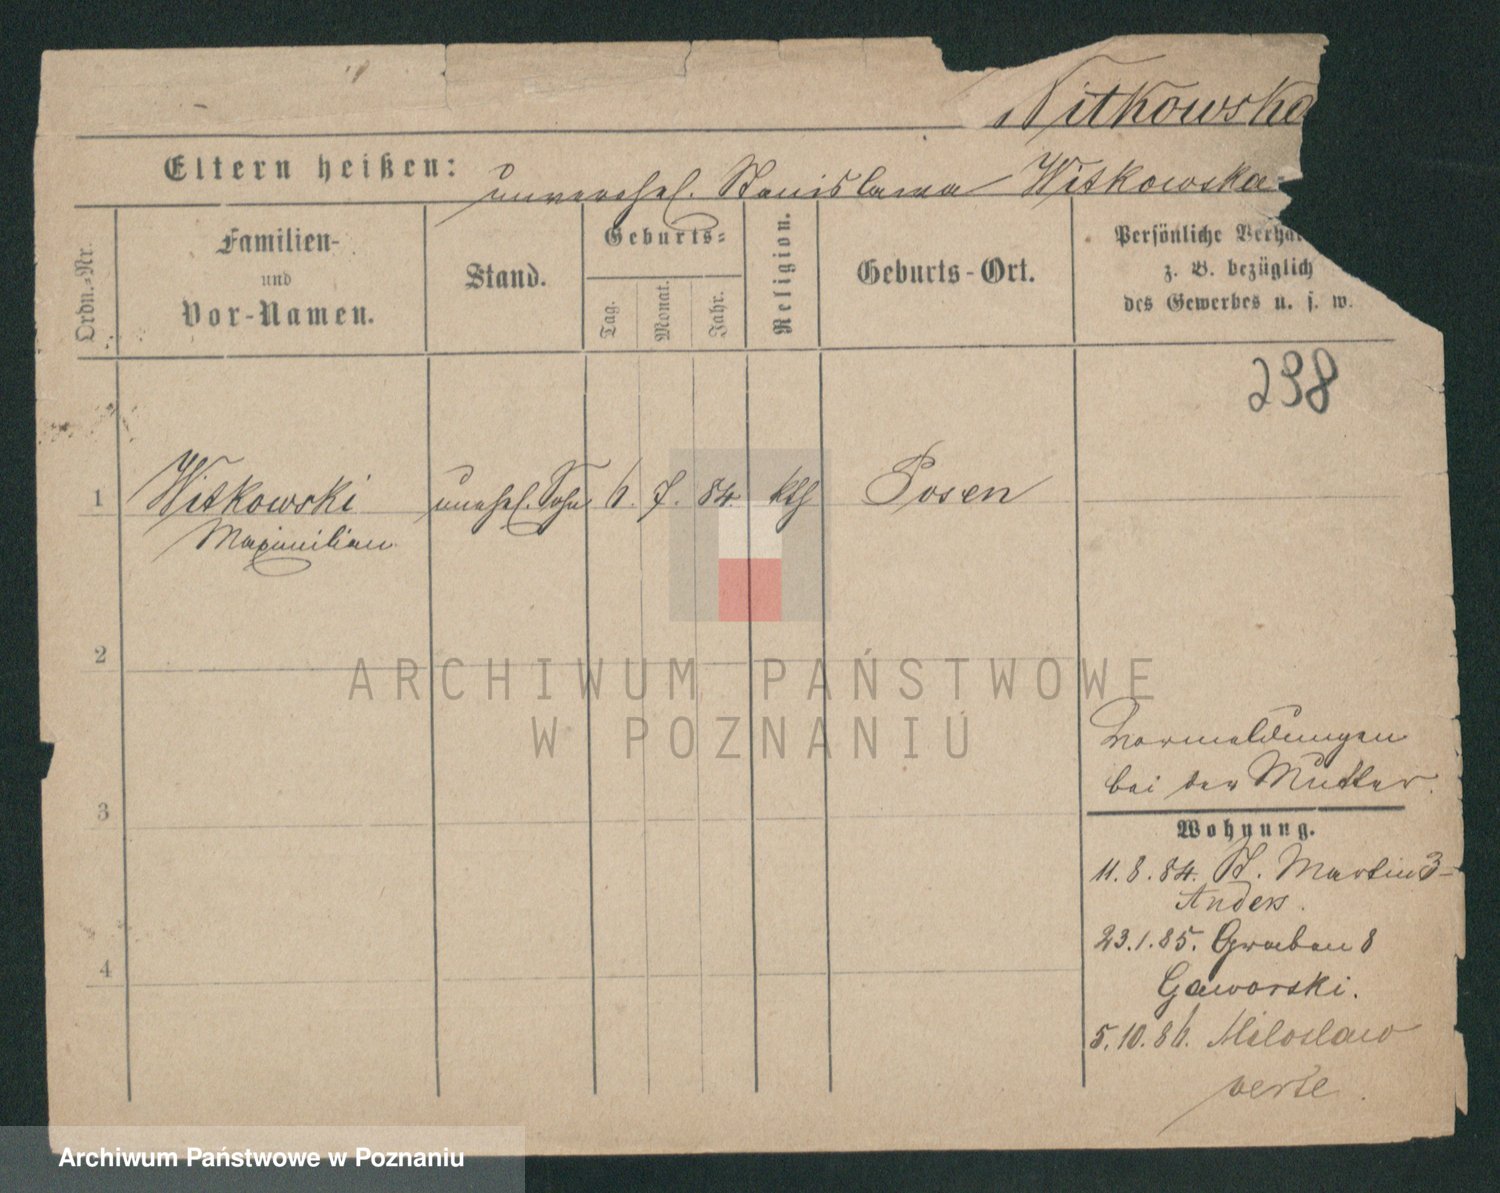 Witkowska
Eltern heißen: unverehel. Stanislawa Witkowska
Ordn.-Nr.
Familien-
und
Vor-Namen.
Stand.
Geburts-
Tag.
Monat.
Jahr.
Religion.
Geburts-Ort.
Persönliche Verhä
z. B. bezüglich
des Gewerbes u. s. w.
238
1 Witkowski unehel. Sohn 6. 7. 84. kth Posen
Maximilian
2
ARCHIWUM PAŃSTWOWE
W POZNANIU
3
4
Vormeldungen
bei der Mutter.
Wohnung.
11.8.84. St. Martin 3
Anders.
23.1.85. Graben 8
Gaworski.
5.10.86. Miloslaw
verte.
Archiwum Państwowe w Poznaniu